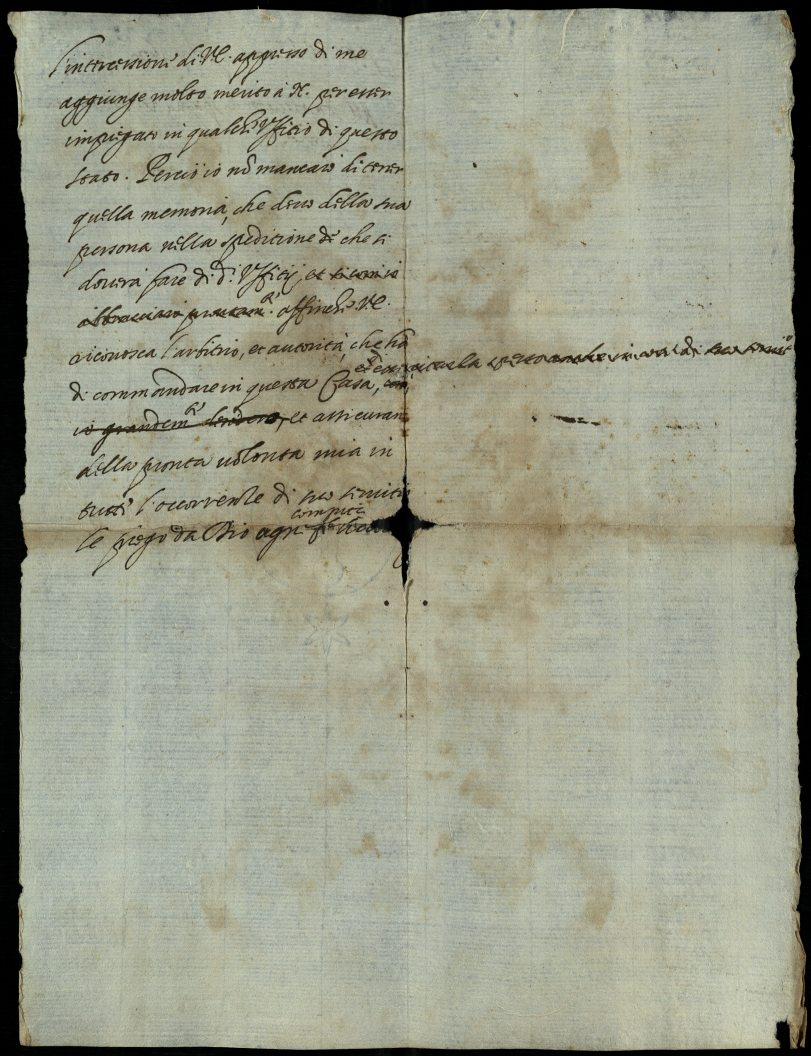 l'intercessione di VE. appresso di me
aggiunge molto merito à N. per esser
impiegato in qualche Uffitio di questo
stato. Perciò io nõ mancarò di tener
quella memoria, che devo della sua
persona nella speditione che si
doverà fare di d.i Uffitij, et
affinche VE.
riconosca l'arbitrio, et autorità, che ha
di commandare in questa Casa,
io grandem.te desidero, et assicuran
della pronta volontà mia in
tutte l'occorrenze di suo servitio
le prego da Dio ogni compita